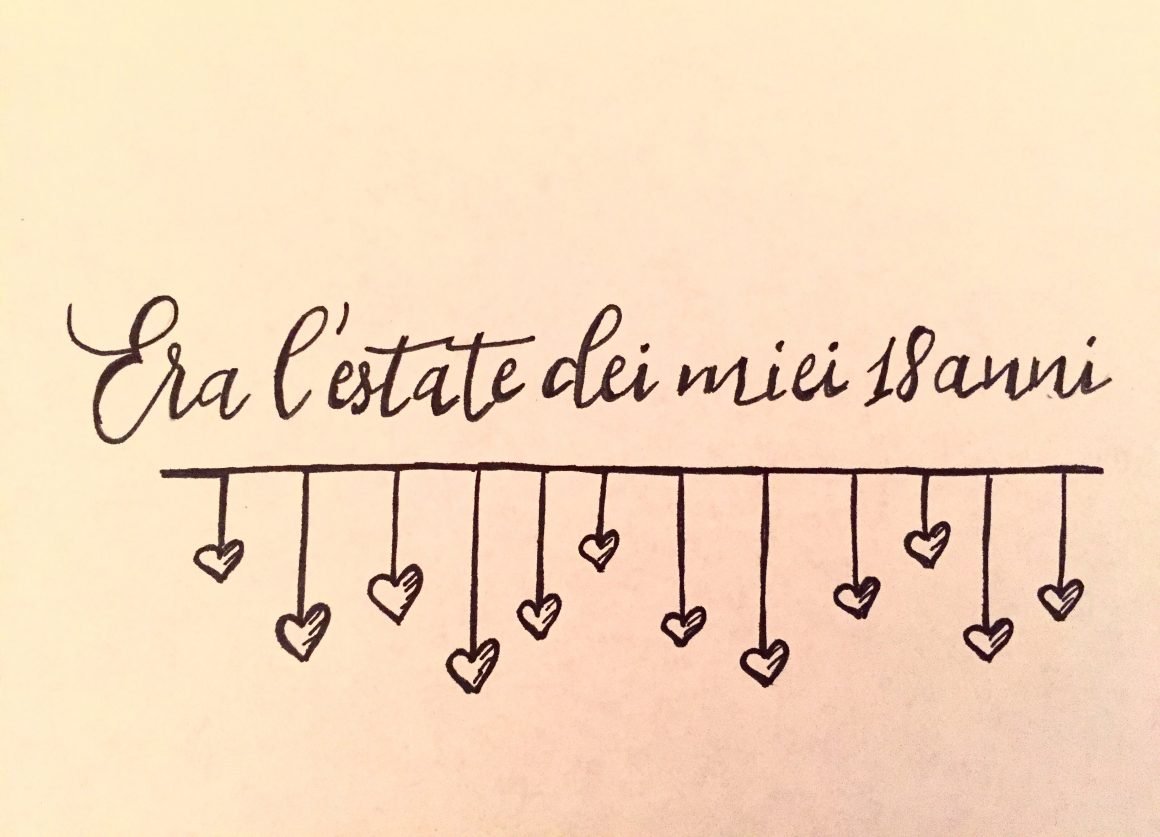 Era l'estate dei miei 18 anni